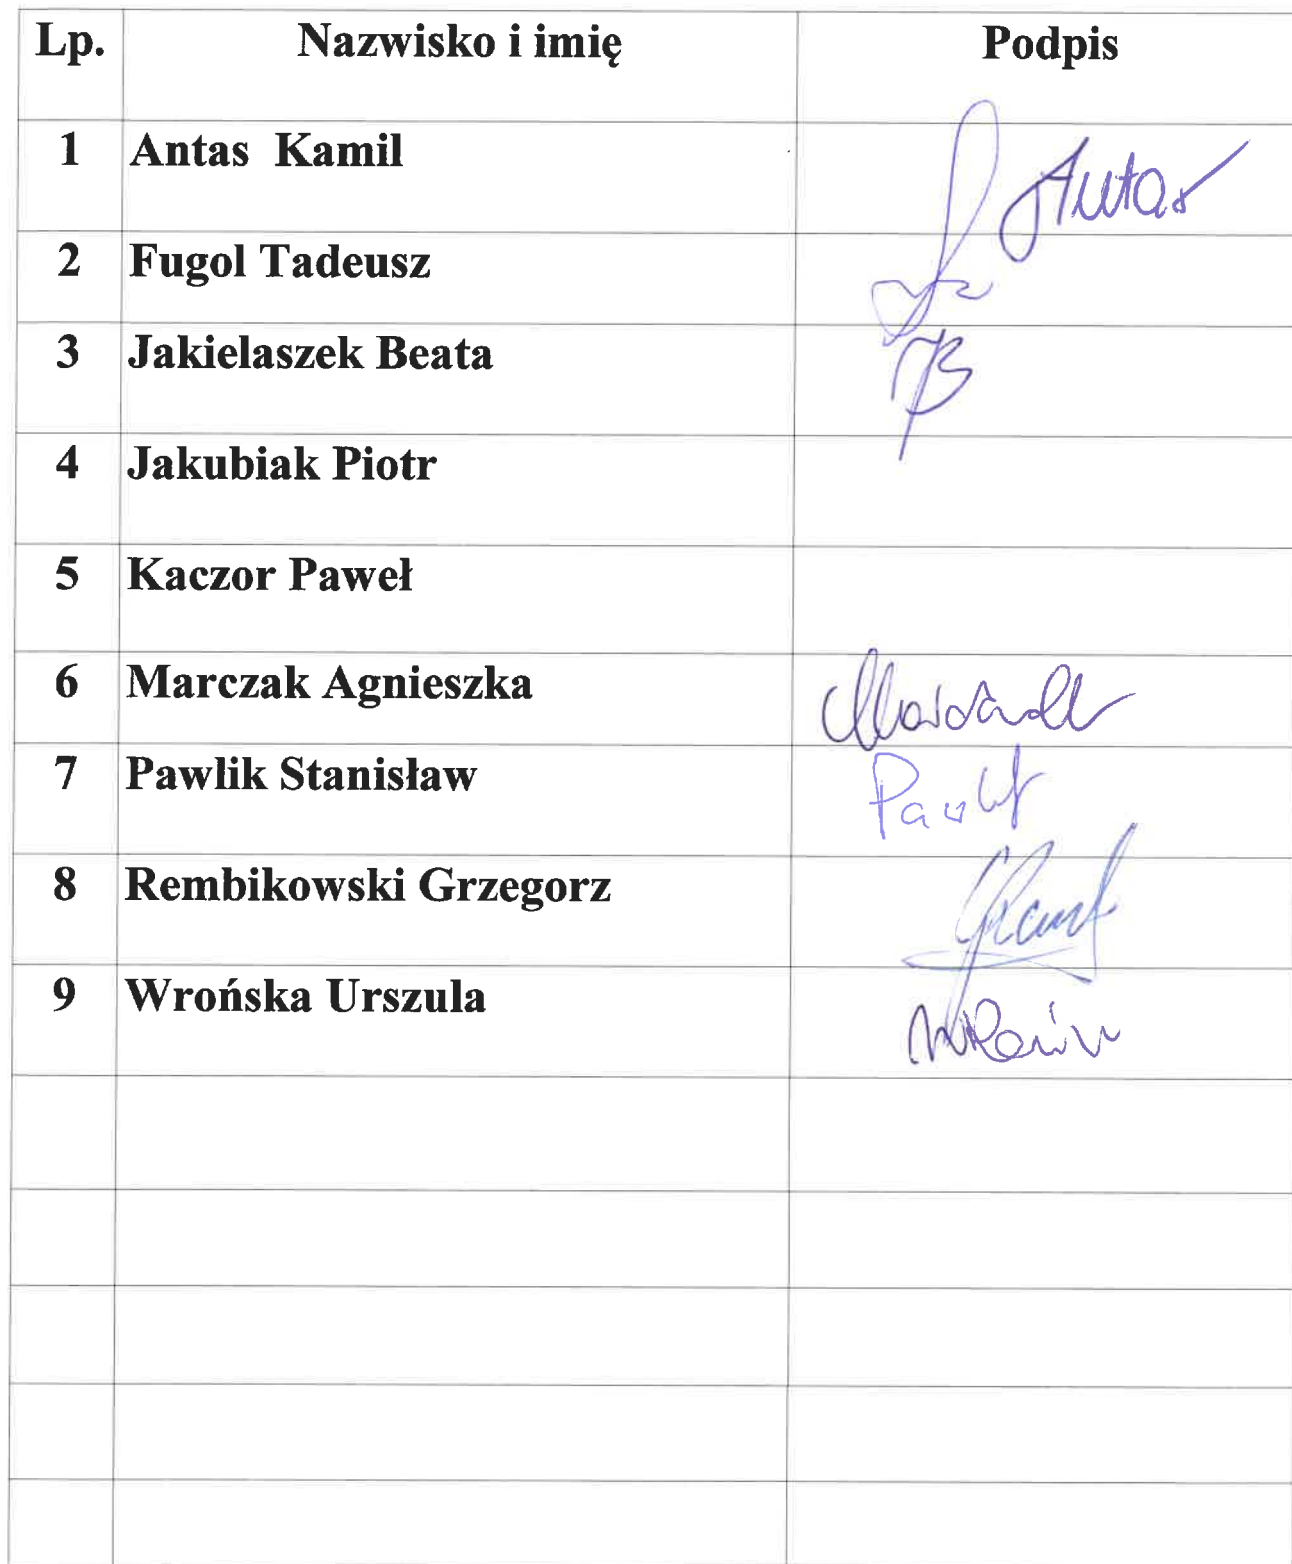 Lp. Nazwisko i imię Podpis
1 Antas Kamil Antas
2 Fugol Tadeusz
3 Jakielaszek Beata JB
4 Jakubiak Piotr
5 Kaczor Paweł
6 Marczak Agnieszka
7 Pawlik Stanisław
8 Rembikowski Grzegorz
9 Wrońska Urszula